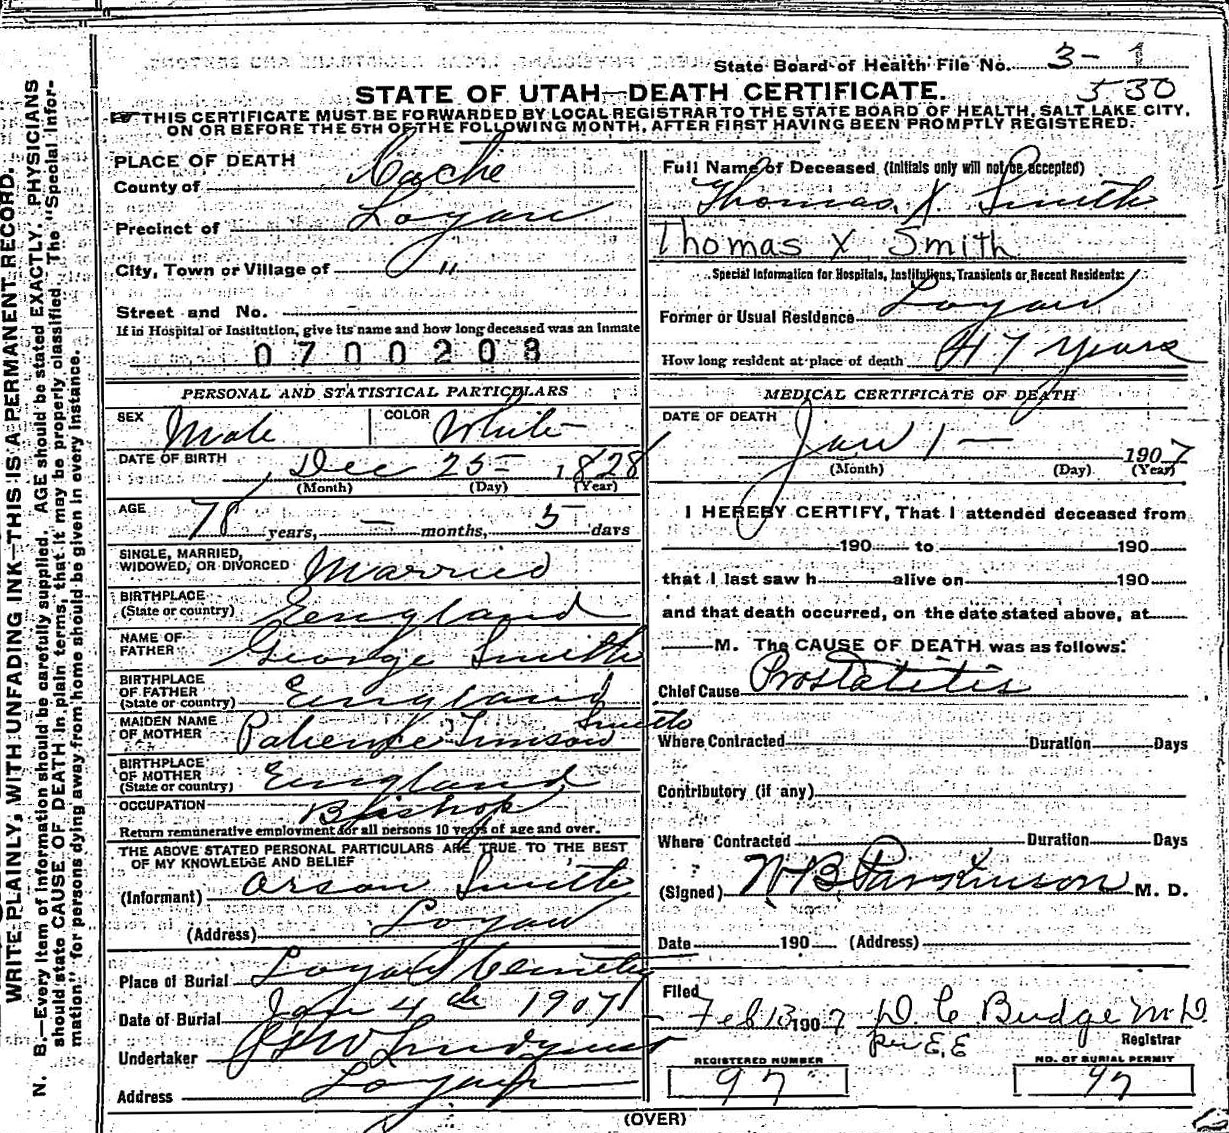 State Board of Health File No. 3- 1
530
STATE OF UTAH—DEATH CERTIFICATE.
THIS CERTIFICATE MUST BE FORWARDED BY LOCAL REGISTRAR TO THE STATE BOARD OF HEALTH, SALT LAKE CITY,
ON OR BEFORE THE 5TH OF THE FOLLOWING MONTH, AFTER FIRST HAVING BEEN PROMPTLY REGISTERED.
WRITE PLAINLY, WITH UNFADING INK—THIS IS A PERMANENT RECORD.
N. B.—Every item of information should be carefully supplied. AGE should be stated EXACTLY. PHYSICIANS
should state CAUSE OF DEATH in plain terms, that it may be properly classified. The "Special Infor-
mation" for persons dying away from home should be given in every instance.
PLACE OF DEATH
County of Cache
Precinct of Logan
City, Town or Village of "
Street and No.
If in Hospital or Institution, give its name and how long deceased was an inmate
0700208
PERSONAL AND STATISTICAL PARTICULARS
SEX Male COLOR White
DATE OF BIRTH Dec 25 1828
(Month) (Day) (Year)
AGE 78 years, — months, 5 days
SINGLE, MARRIED,
WIDOWED, OR DIVORCED Married
BIRTHPLACE
(State or country) England
NAME OF
FATHER George Smith
BIRTHPLACE
OF FATHER
(State or country) England
MAIDEN NAME
OF MOTHER Patience Smith
BIRTHPLACE
OF MOTHER
(State or country) England
OCCUPATION Bishop
Return remunerative employment for all persons 10 years of age and over.
THE ABOVE STATED PERSONAL PARTICULARS ARE TRUE TO THE BEST
OF MY KNOWLEDGE AND BELIEF
(Informant) Orson Smith
(Address) Logan
Place of Burial Logan Cemetery
Date of Burial Jan 4th 1907
Undertaker Lindquist
Address Logan
Full Name of Deceased (Initials only will not be accepted)
Thomas X. Smith
Thomas X. Smith
Special Information for Hospitals, Institutions, Transients or Recent Residents:
Former or Usual Residence Logan
How long resident at place of death 47 years
MEDICAL CERTIFICATE OF DEATH
DATE OF DEATH
Jan 1 — 1907
(Month) (Day) (Year)
I HEREBY CERTIFY, That I attended deceased from
190 to 190
that I last saw h alive on 190
and that death occurred, on the date stated above, at
M. The CAUSE OF DEATH was as follows:
Chief Cause Prostatitis
Where Contracted Duration Days
Contributory (if any)
Where Contracted Duration Days
(Signed) W B Parkinson M. D.
Date 190 (Address)
Filed
Feb 13 1907 D. C. Budge M.D.
per E.E Registrar
REGISTERED NUMBER NO. OF BURIAL PERMIT
97 97
(OVER)